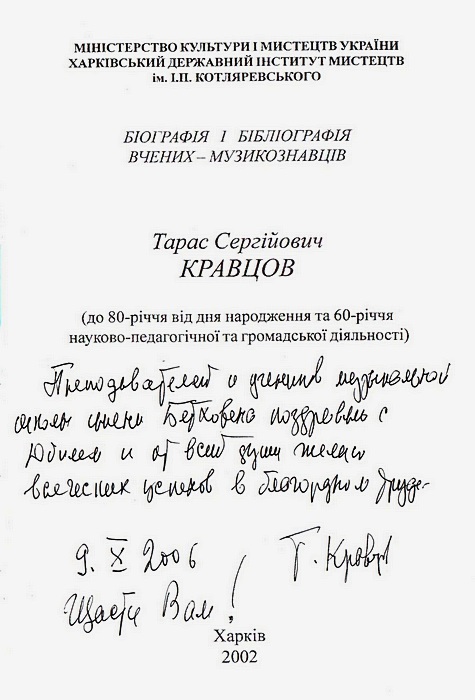 МІНІСТЕРСТВО КУЛЬТУРИ І МИСТЕЦТВ УКРАЇНИ
ХАРКІВСЬКИЙ ДЕРЖАВНИЙ ІНСТИТУТ МИСТЕЦТВ
ім. І.П. КОТЛЯРЕВСЬКОГО
БІОГРАФІЯ І БІБЛІОГРАФІЯ
ВЧЕНИХ – МУЗИКОЗНАВЦІВ
Тарас Сергійович
КРАВЦОВ
(до 80-річчя від дня народження та 60-річчя
науково-педагогічної та громадської діяльності)
Преподавателей и учеников музыкальной
школы имени Бетховена поздравляю с
Юбилеем и от всей души желаю
всяческих успехов в благородном труде
9. X 2006 Т. Кравцов
Щасти Вам!
Харків
2002